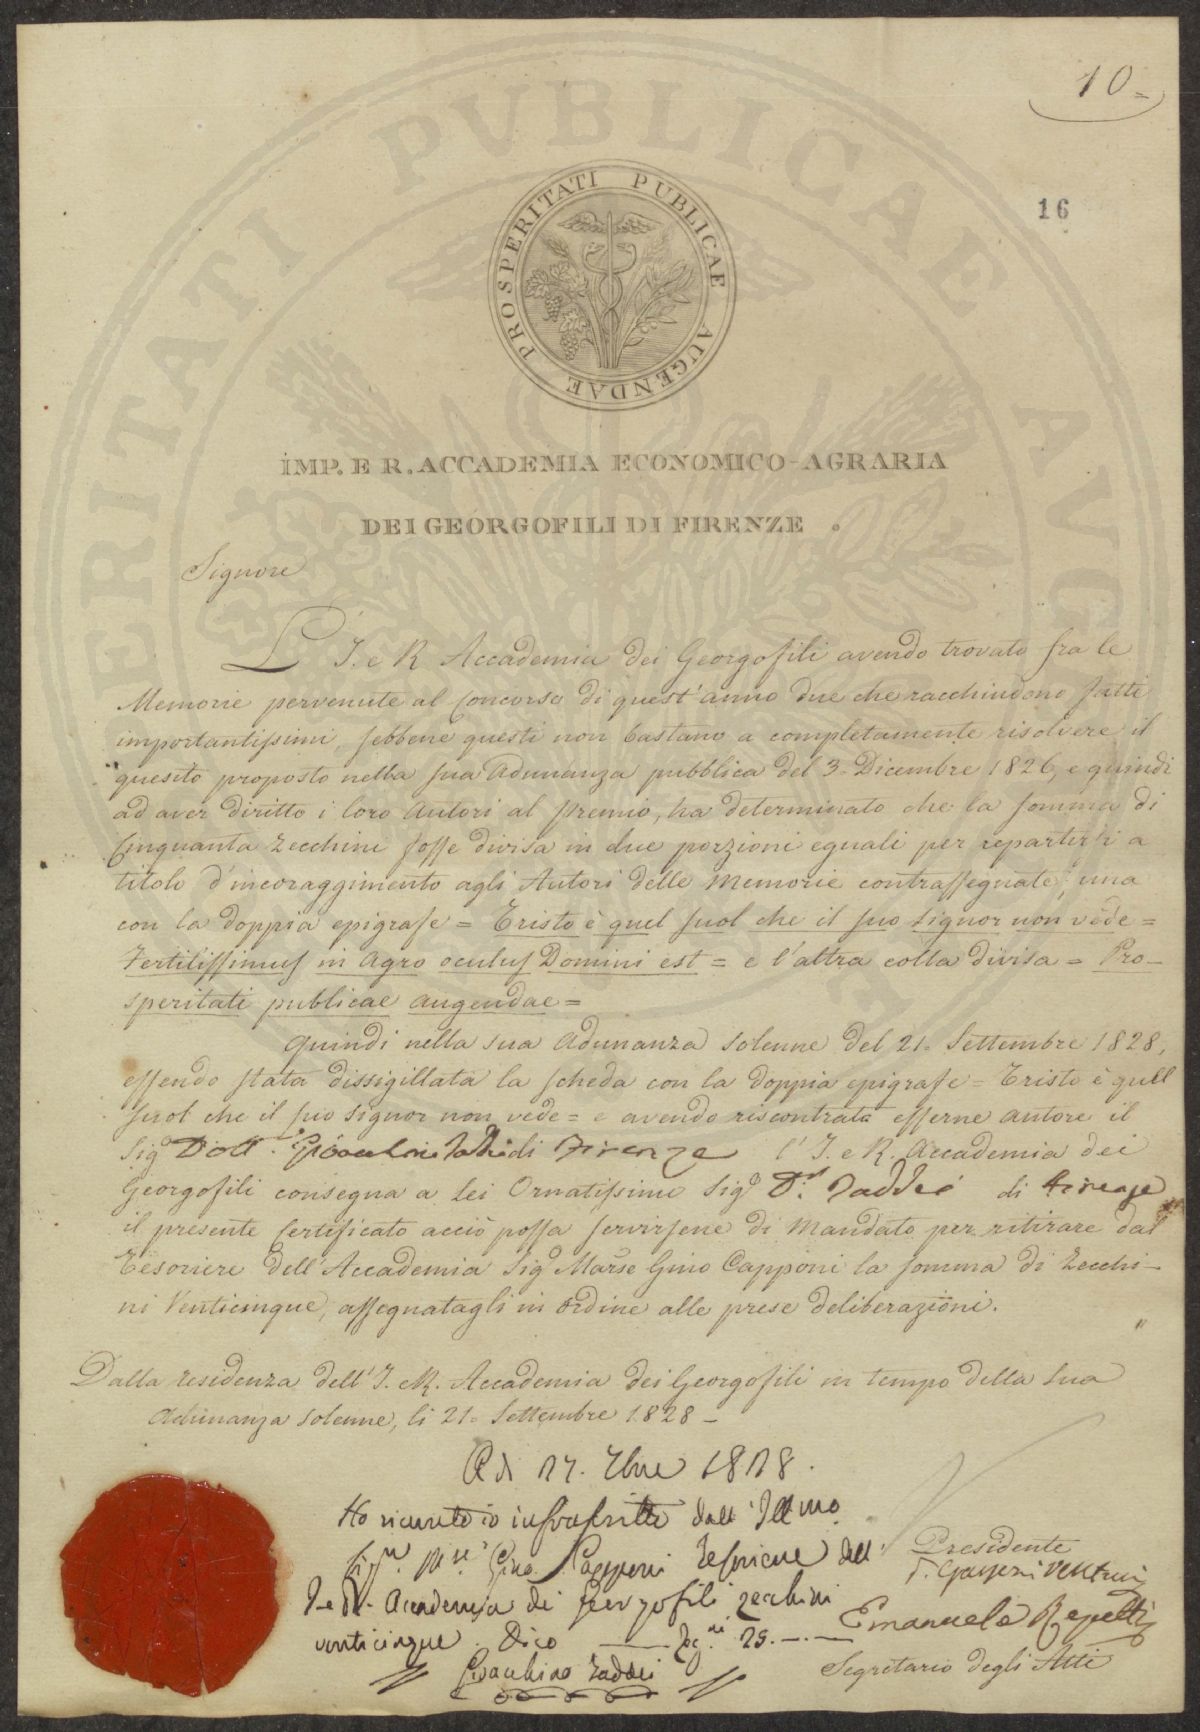 10=
16
PROSPERITATI PUBLICAE AUGENDAE
IMP. E R. ACCADEMIA ECONOMICO-AGRARIA
DEI GEORGOFILI DI FIRENZE.
Signore
L'I. e R Accademia dei Georgofili avendo trovato fra le
Memorie pervenute al Concorso di quest'anno due che racchiudono fatti
importantissimi, sebbene questi non bastano a completamente risolvere il
quesito proposto nella sua Adunanza pubblica del 3= Dicembre 1826, e quindi
ad aver diritto i loro Autori al premio, ha determinato che la somma di
Cinquanta Zecchini fosse divisa in due porzioni eguali per repartirsi a
titolo d'incoraggimento agli Autori delle Memorie contrassegnate, una
con la doppia epigrafe = Tristo è quel suol che il suo signor non vede =
Fertilissimus in agro oculus Domini est = e l'altra colla divisa = Pro-
speritati publicae augendae =
Quindi nella sua Adunanza solenne del 21= Settembre 1828,
essendo stata dissigillata la scheda con la doppia epigrafe = Tristo è quell
suol che il suo signor non vede = e avendo riscontrata esserne autore il
Sigr Dott. Gioacchino Taddei di Firenze l'I. e R. Accademia dei
Georgofili consegna a Lei Ornatissimo Sigr Dr. Taddei di Firenze
il presente Certificato acciò possa servirsene di Mandato per ritirare dal
Tesoriere dell'Accademia Sigr Marse Gino Capponi la somma di Zecchi-
ni Venticinque, assegnatagli in ordine alle prese deliberazioni.
Dalla residenza dell'I. e R. Accademia dei Georgofili in tempo della sua
Adunanza solenne, li 21= Settembre 1828 -
A dì 27. 1828.
Ho ricevuto io infrascritto dall'Illmo
Sigre Mse Gino Capponi Tesoriere dell'
I e R. Accademia dei Georgofili zecchini
venticinque. Dico Zni 25.
Gioacchino Taddei
Presidente
Emanuele Repetti
Segretario degli Atti